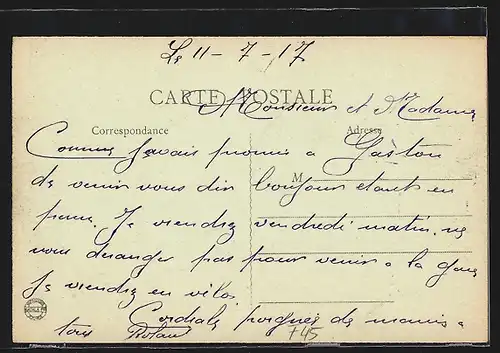 Le 11 - 7 - 17
CARTE POSTALE
Monsieur et Madame
Correspondance
Adresse
Comme j'avais promis a Gaston
M
de venir vous dire bonjour etant en
perm. Je viendrez vendredi matin. ne
vous deranger pas pour venir a la gare
Je viendrez en vélo
Cordiale poignée de mains a
tous Roland
745